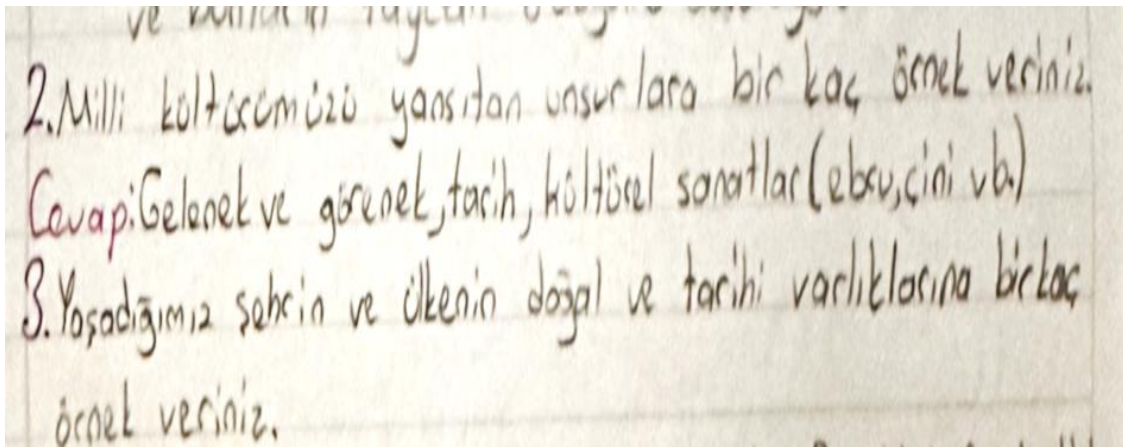 ve
2. Milli kültürümüzü yansıtan unsurlara bir kaç örnek veriniz.
Cevap: Gelenek ve görenek, tarih, kültürel sanatlar (ebru, çini vb.)
3. Yaşadığımız şehrin ve ülkenin doğal ve tarihi varlıklarına birkaç
örnek veriniz.